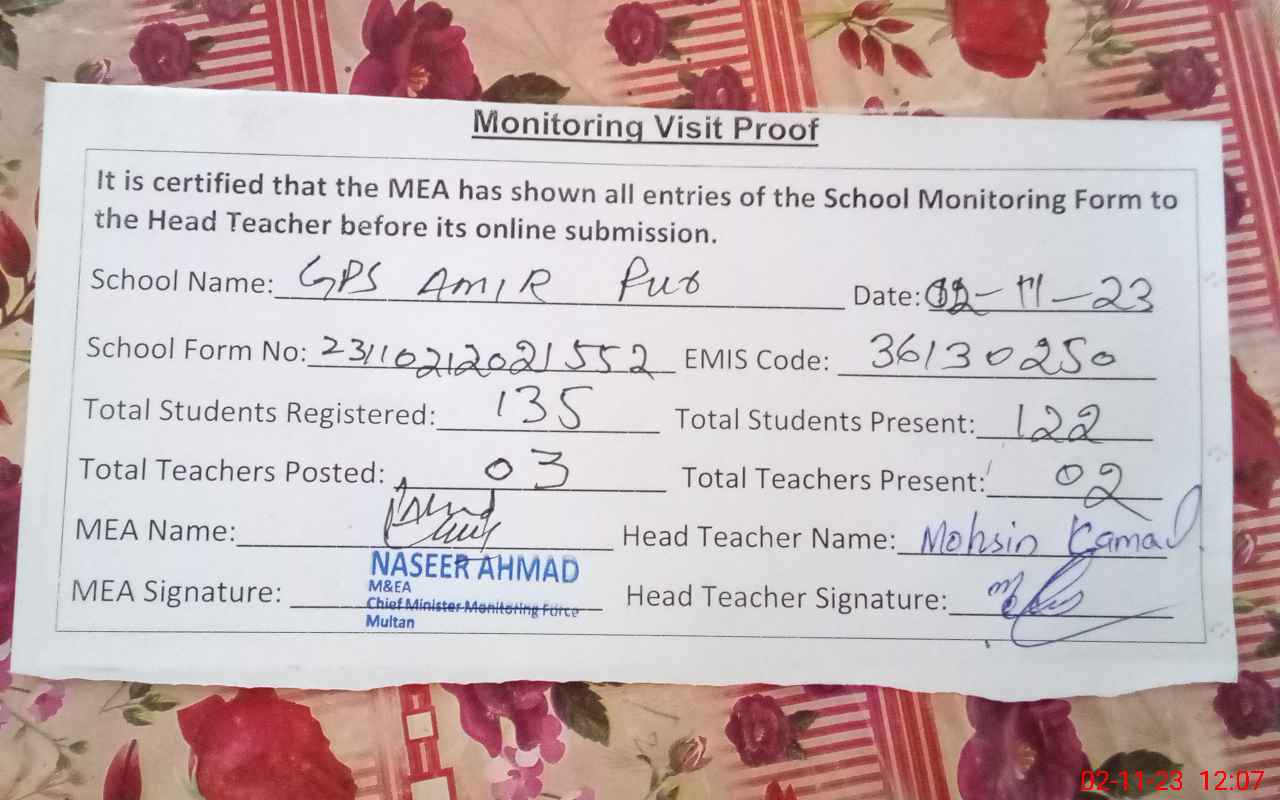 Monitoring Visit Proof
It is certified that the MEA has shown all entries of the School Monitoring Form to
the Head Teacher before its online submission.
School Name: GPS AMIR Pur Date: 02-11-23
School Form No: 231102120211552 EMIS Code: 36130250
Total Students Registered: 135 Total Students Present: 122
Total Teachers Posted: 03 Total Teachers Present: 02
MEA Name: Head Teacher Name: Mohsin Kamal
NASEER AHMAD
M&EA
MEA Signature: Head Teacher Signature:
Chief Minister Monitoring Force
Multan
02-11-23 12:07